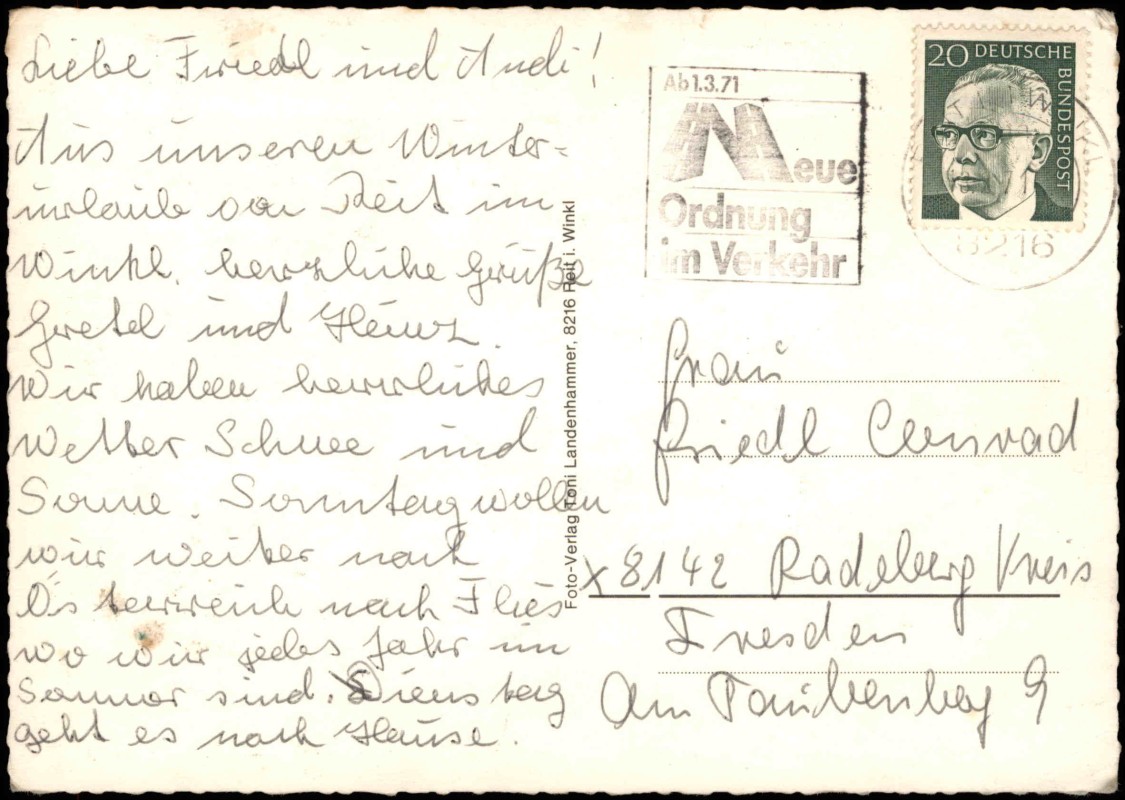 Liebe Friedl und Andi!
Aus unseren Winter=
urlaub von Reit im
Winkl. herzliche Grüße
Gretel und Heinz.
Wir haben herrliches
Wetter Schnee und
Sonne. Sonntag wollen
wir weiter nach
Österreich nach Flies
wo wir jedes Jahr im
Sommer sind. Dienstag
geht es nach Hause.
Foto-Verlag Toni Landenhammer, 8216 Reit i. Winkl
Ab 1.3.71
Neue
Ordnung
im Verkehr
20 DEUTSCHE
BUNDESPOST
8216
Frau
Friedl Conrad
x 8142 Radeberg Kreis
Dresden
Am 9